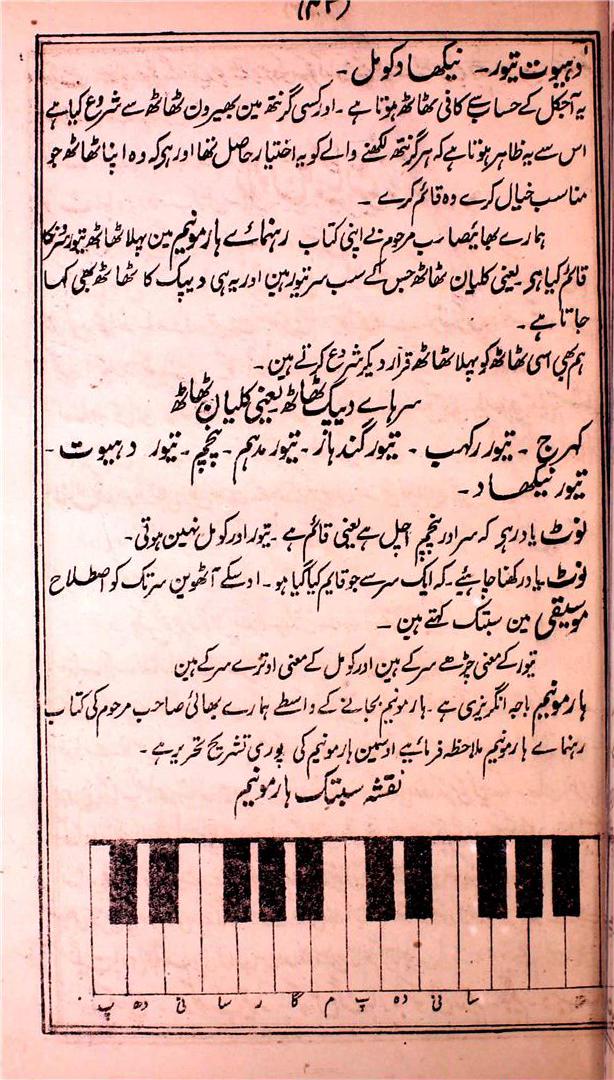 (۴۲)
دہیوت تیور۔ نیکھاد کومل۔
یہ آجکل کے حساب سے کافی ٹھاٹھ ہوتا ہے۔ اور کسی گرنتھ مین بھیرون ٹھاٹھ سے شروع کیا ہے
اس سے یہ ظاہر ہوتا ہے کہ ہر گرنتھ لکھنے والے کو یہ اختیار حاصل تھا اور ہی کہ وہ اپنا ٹھاٹھ جو
مناسب خیال کرے وہ قائم کرے۔
ہمارے بھائیصاحب مرحوم نے اپنی کتاب رہنمائے ہارمونیم مین پہلا ٹھاٹھ تیور سرونکا
قائم کیا ہی یعنی کلیان ٹھاٹھ جس کے سب سر تیور ہین اور یہ ہی دیپک کا ٹھاٹھ بھی کہا
جاتا ہے۔
ہم بھی اسی ٹھاٹھ کو پہلا ٹھاٹھ قرار دیکر شروع کرتے ہین۔
سرہاے دیپک ٹھاٹھ یعنی کلیان ٹھاٹھ
کہرج۔ تیور رکہب۔ تیور گندہار۔ تیور مدہم۔ پنچم۔ تیور دہیوت۔
تیور نیکھاد۔
نوٹ یاد رہی کہ سر اور پنچم اچل ہے یعنی قائم ہے۔ تیور اور کومل نہین ہوتی۔
نوٹ یاد رکھنا چاہئیے۔ کہ ایک سر سے جو قایم کیا گیا ہو۔ اوسکے آٹھوین سر تک کو اصطلاح
موسیقی مین سبتک کہتے ہین۔
تیور کے معنی چڑھے سر کے ہین اور کومل کے معنی اوترے سر کے ہین
ہارمونیم باجہ انگریزی ہے۔ ہارمونیم بجانے کے واسطے ہمارے بھائی صاحب مرحوم کی کتاب
رہنماے ہارمونیم ملاحظہ فرمائیے اوسمین ہارمونیم کی پوری تشریح تحریر ہے۔
نقشہ سبتک ہارمونیم
سا نی دہ پ م گا ر سا نی دھ پ